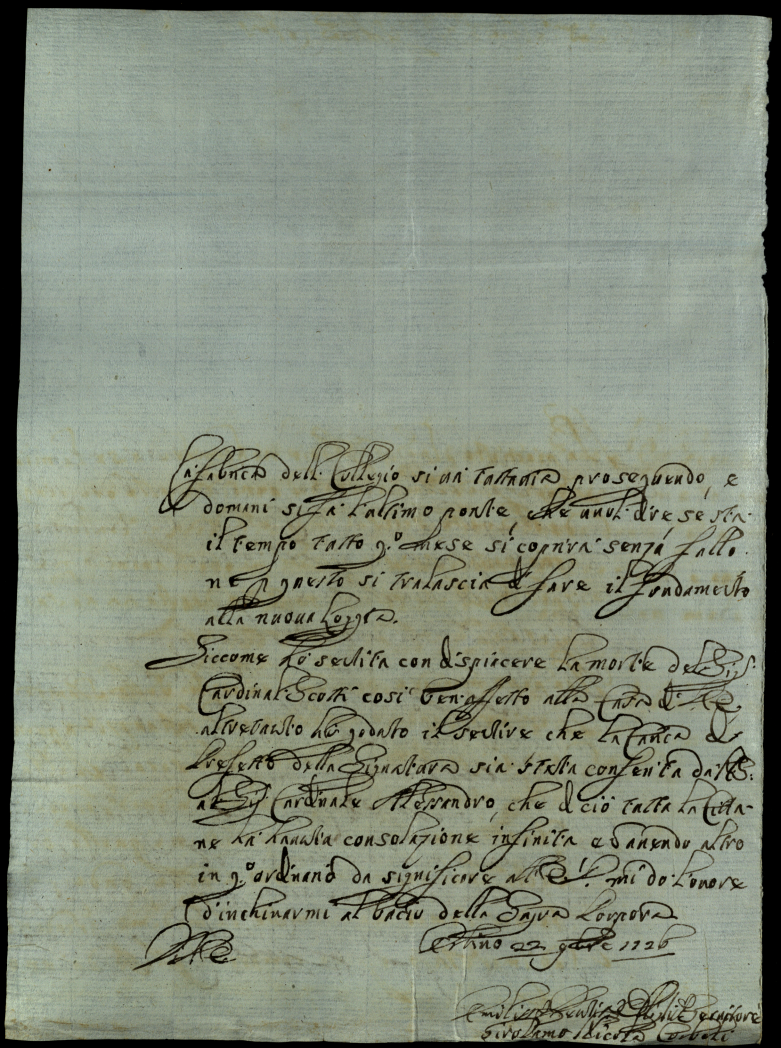 La fabrica dell Collegio si và tuttavia proseguendo, e
domani si fà l'ultimo ponte, che vuol dire se stà
il tempo tutto q.o mese si coprirà senza fallo
ne p questo si tralascia di fare il fondamento
alla nuova Loggia.
Siccome hò sentita con dispiacere la morte del Sig.
Cardinal Scotti così ben affetto alla Casa di
altretanto hò goduto il sentire che la Carica di
Prefetto della Signatura sia stata conferita da
al Sig. Cardinale Alessandro, che di ciò tutta la Città
ne hà hauuta consolazione infinita e altro
in q.o ordinario da significare all mi do l'onore
d'inchinarmi al bacio della Sagra Porpora
Urbino 22 9bre 1726
Servitore
Girolamo Nicola